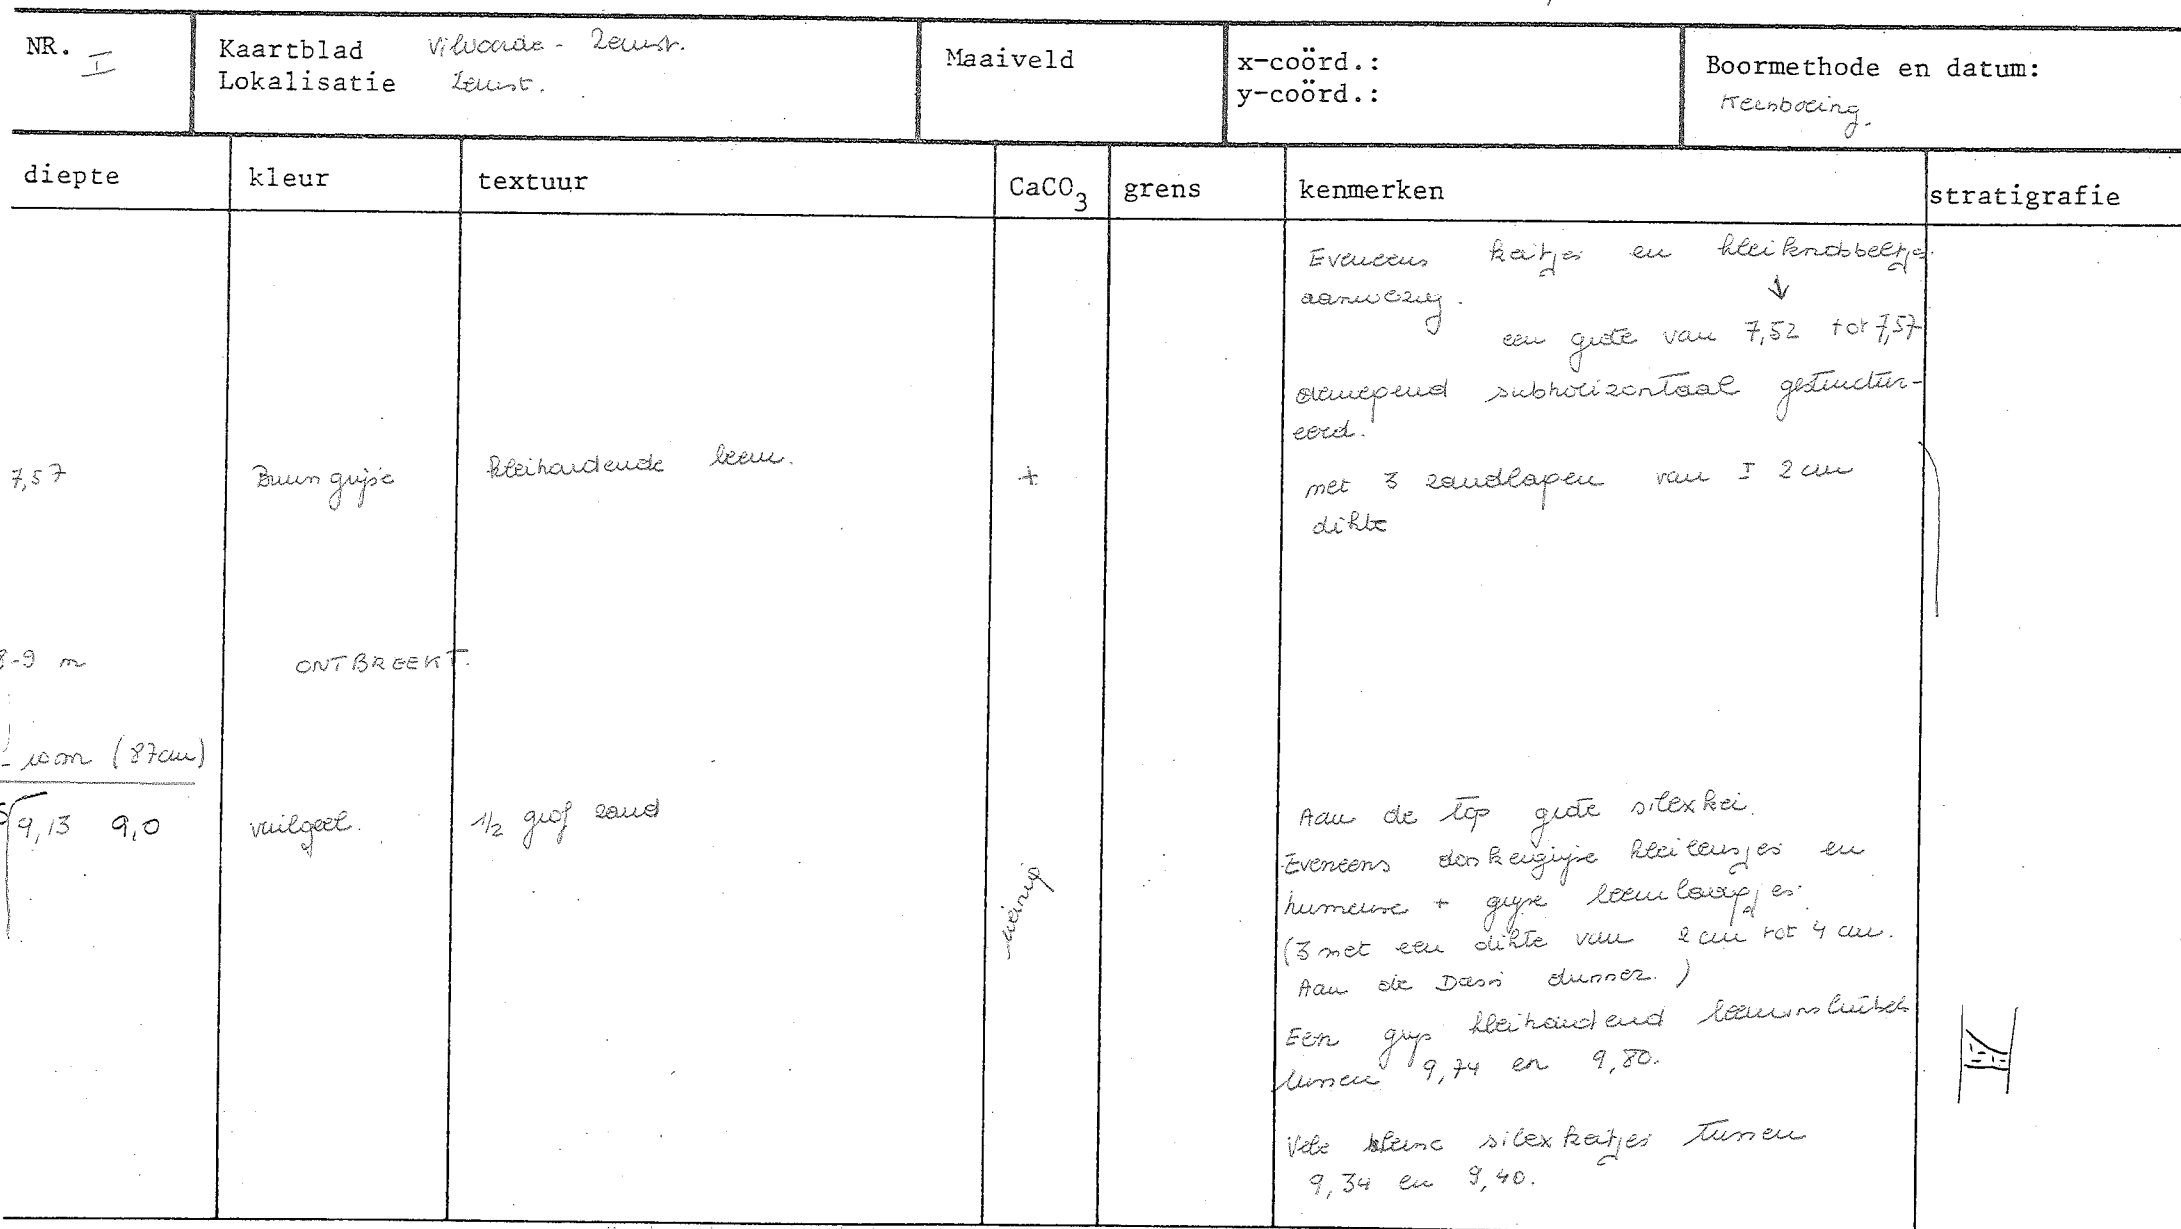 NR. I
Kaartblad Vilvoorde - Zemst.
Lokalisatie Zemst.
Maaiveld
x-coörd.:
y-coörd.:
Boormethode en datum:
Kernboring.
diepte kleur textuur CaCO3 grens kenmerken stratigrafie
Eveneens keitjes en kleiknobbeltjes
aanwezig. ↓
een grote van 7,52 tot 7,57
subhorizontaal gestructur-
eerd.
7,57 Bruin grijze kleihoudende leem. + met 3 zandlagen van ± 2 cm
dikte
8-9 m ONTBREEKT.
- 10m (87cm)
9,13 9,0 vuilgeel. 1/2 grof zand weinig Aan de top grote silexkei.
Eveneens donkergrijze kleilensjes en
humeuse + grijze leemlaagjes.
(3 met een dikte van 2 cm tot 4 cm.
Aan de Basis dunner.)
Een grijs kleihoudend leeminsluitsel
tussen 9,74 en 9,80.
Vele kleine silexkeitjes tussen
9,34 en 9,40.